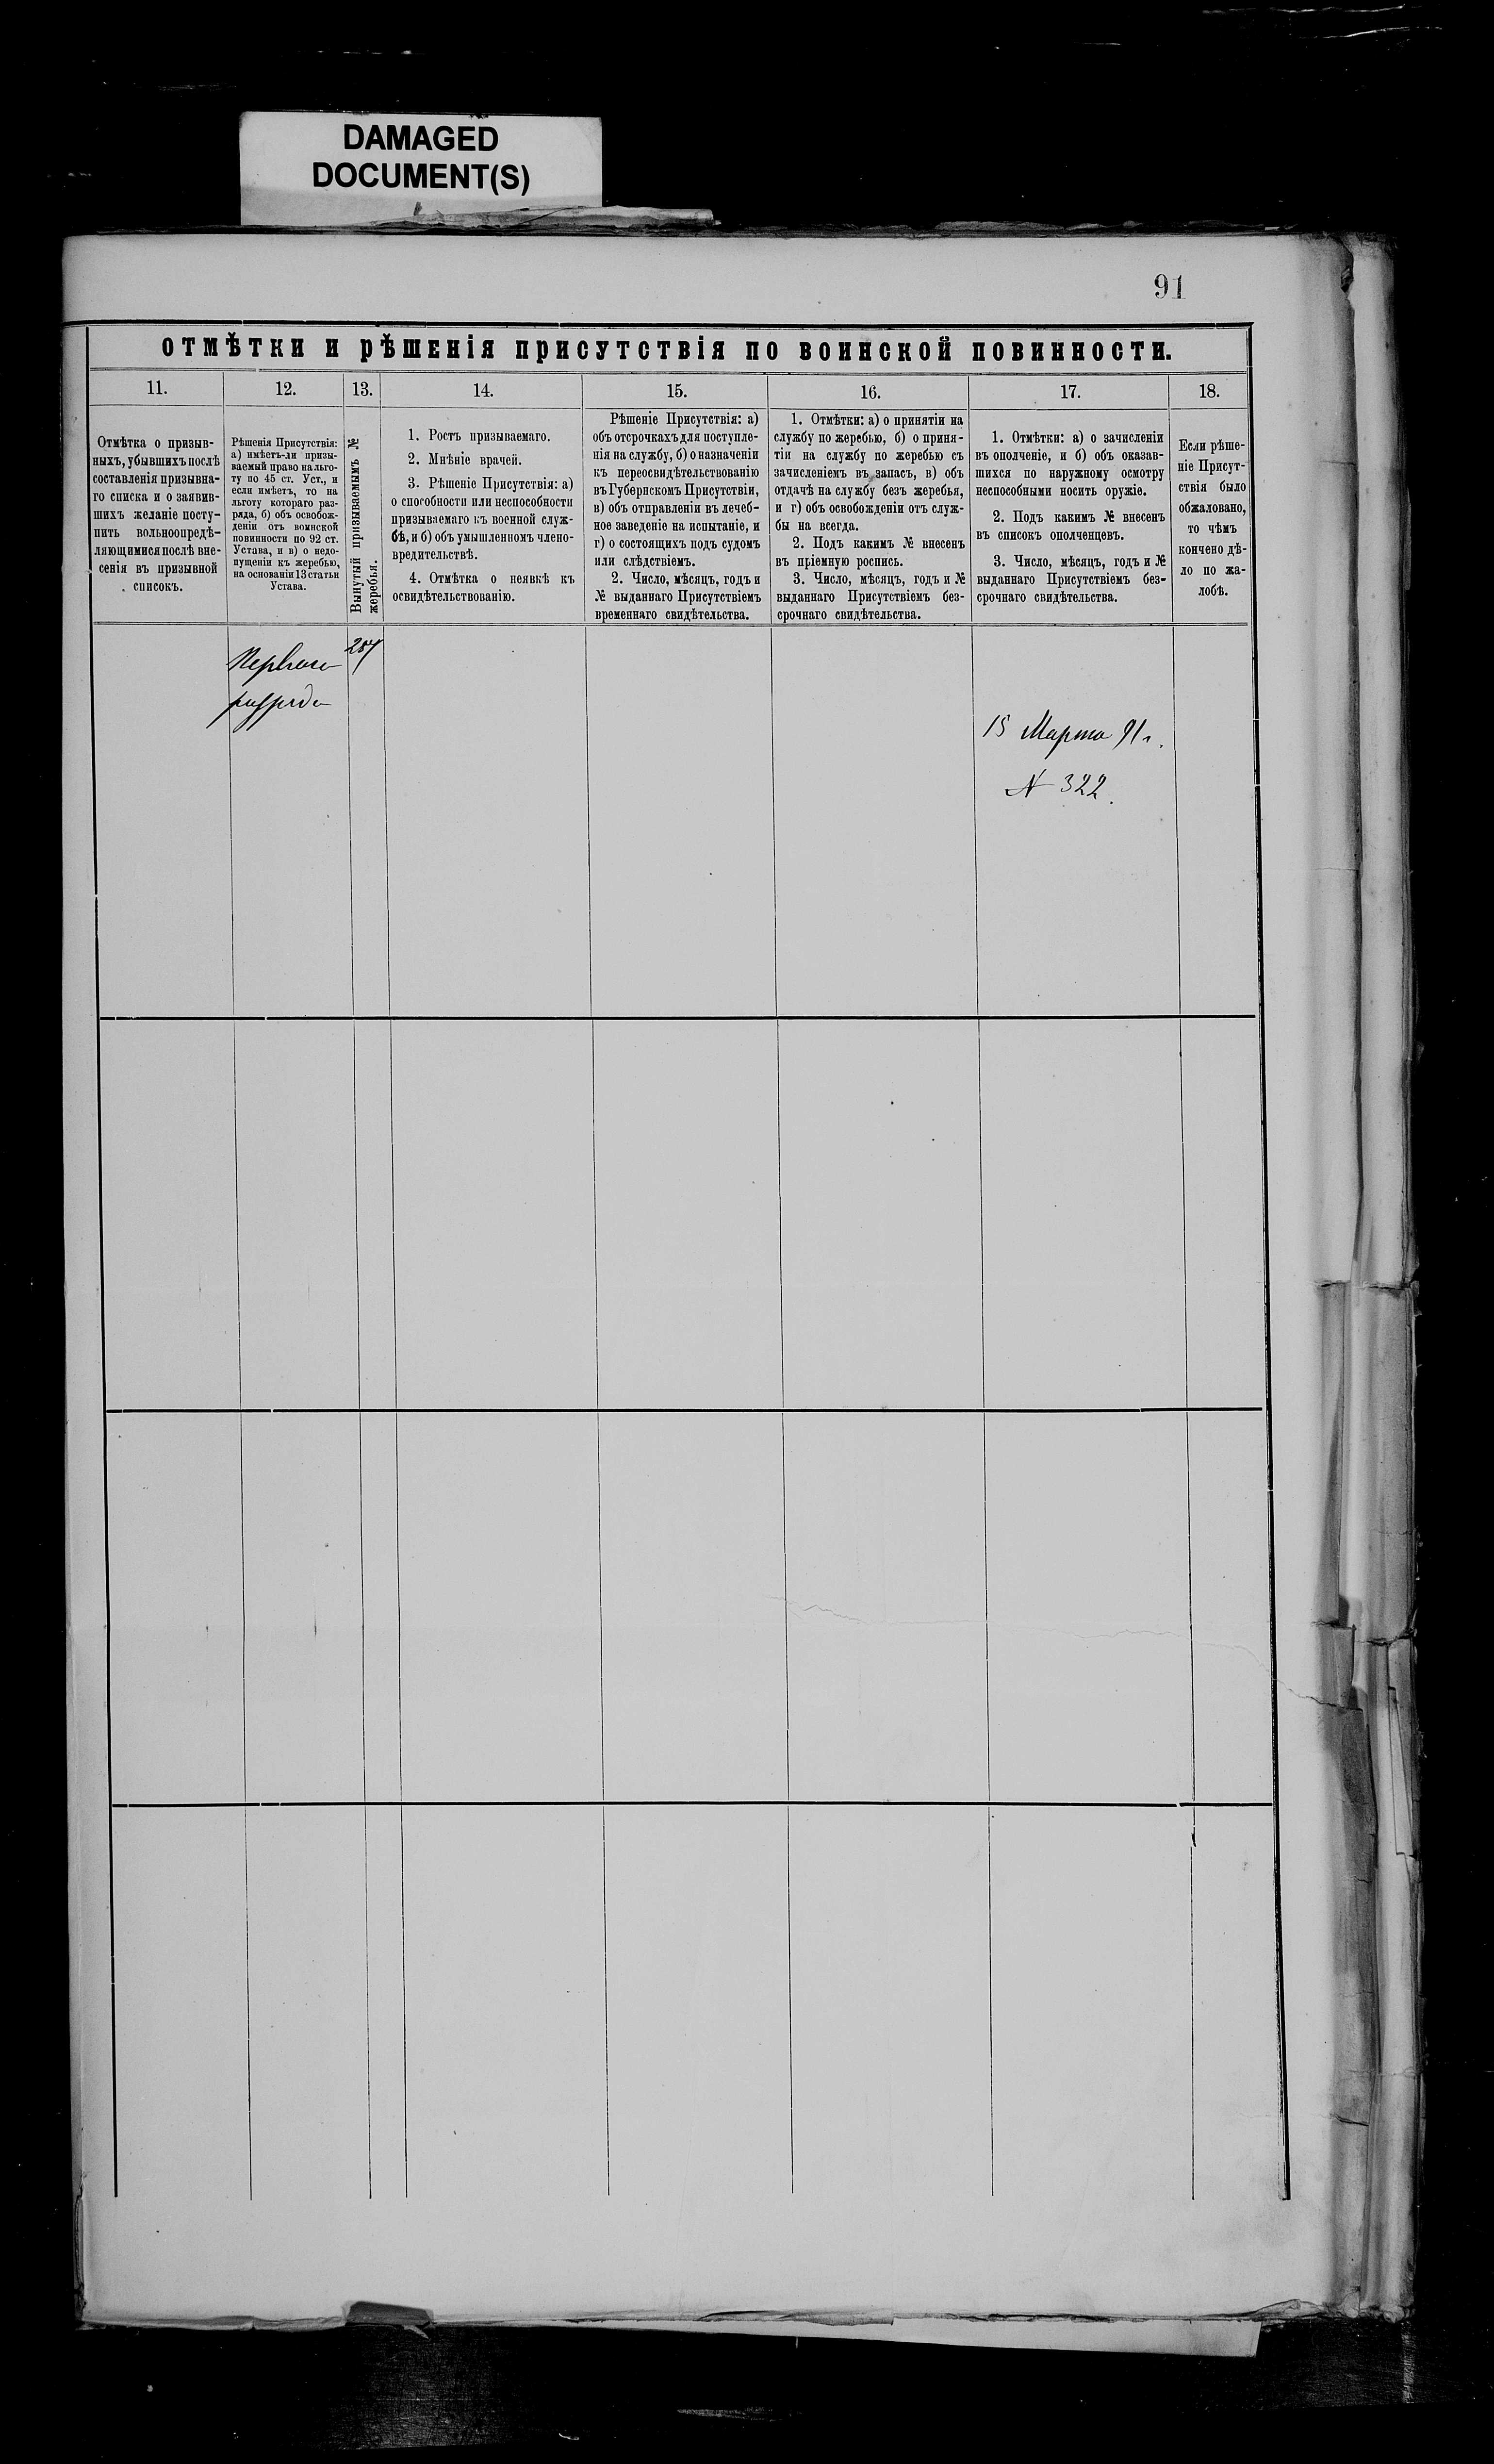 DAMAGED
DOCUMENT(S)
91
ОТМѢТКИ И РѢШЕНІЯ ПРИСУТСТВІЯ ПО ВОИНСКОЙ ПОВИННОСТИ.
11.
12.
13.
14.
15.
16.
17.
18.
Отмѣтка о призыв-
ныхъ, убывшихъ послѣ
составленія призывна-
го списка и о заявив-
шихъ желаніе посту-
пить вольноопредѣ-
ляющимися послѣ вне-
сенія въ призывной
списокъ.
Рѣшенія Присутствія:
а) имѣетъ-ли призы-
ваемый право на льго-
ту по 45 ст. Уст., и
если имѣетъ, то на
льготу котораго раз-
ряда, б) объ освобож-
деніи отъ воинской
повинности по 92 ст.
Устава, и в) о недо-
пущеніи къ жеребью,
на основаніи 13 статьи
Устава.
Вынутый призываемымъ №
жеребья.
1. Ростъ призываемаго.
2. Мнѣніе врачей.
3. Рѣшеніе Присутствія: а)
о способности или неспособности
призываемаго къ военной служ-
бѣ, и б) объ умышленномъ члено-
вредительствѣ.
4. Отмѣтка о неявкѣ къ
освидѣтельствованію.
Рѣшеніе Присутствія: а)
объ отсрочкахъ для поступле-
нія на службу, б) о назначеніи
къ переосвидѣтельствованію
въ Губернскомъ Присутствіи,
в) объ отправленіи въ лечеб-
ное заведеніе на испытаніе, и
г) о состоящихъ подъ судомъ
или слѣдствіемъ.
2. Число, мѣсяцъ, годъ и
№ выданнаго Присутствіемъ
временнаго свидѣтельства.
1. Отмѣтки: а) о принятіи на
службу по жеребью, б) о приня-
тіи на службу по жеребью съ
зачисленіемъ въ запасъ, в) объ
отдачѣ на службу безъ жеребья,
и г) объ освобожденіи отъ служ-
бы на всегда.
2. Подъ какимъ № внесенъ
въ пріемную роспись.
3. Число, мѣсяцъ, годъ и №
выданнаго Присутствіемъ без-
срочнаго свидѣтельства.
1. Отмѣтки: а) о зачисленіи
въ ополченіе, и б) объ оказав-
шихся по наружному осмотру
неспособными носить оружіе.
2. Подъ какимъ № внесенъ
въ списокъ ополченцевъ.
3. Число, мѣсяцъ, годъ и №
выданнаго Присутствіемъ без-
срочнаго свидѣтельства.
Если рѣше-
ніе Присут-
ствія было
обжаловано,
то чѣмъ
кончено дѣ-
ло по жа-
лобѣ.
Перваго
разряда
15 Марта 91 г.
№ 322.